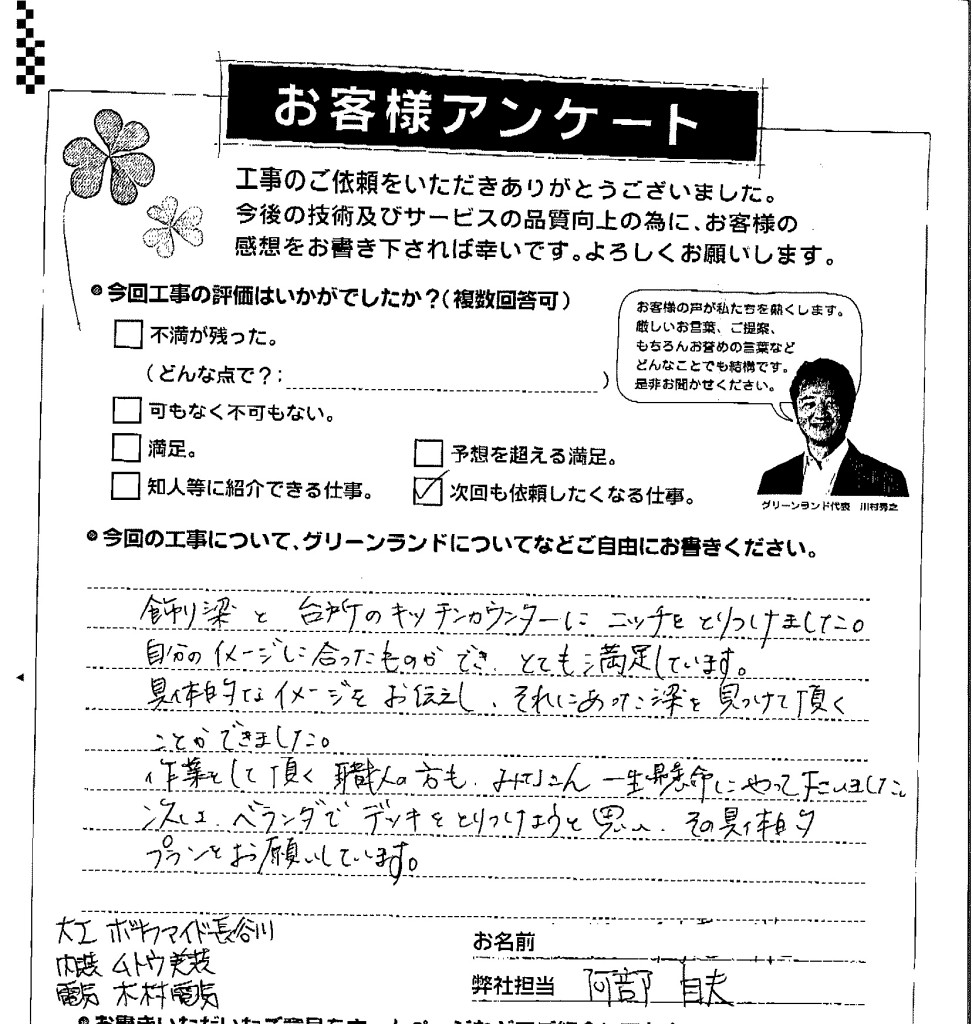 お客様アンケート
工事のご依頼をいただきありがとうございました。
今後の技術及びサービスの品質向上の為に、お客様の
感想をお書き下されば幸いです。よろしくお願いします。
今回工事の評価はいかがでしたか？（複数回答可）
不満が残った。
（どんな点で？：　　　）
可もなく不可もない。
満足。
予想を超える満足。
知人等に紹介できる仕事。
次回も依頼したくなる仕事。
お客様の声が私たちを熱くします。
厳しいお言葉、ご提案、
もちろんお誉めの言葉など
どんなことでも結構です。
是非お聞かせください。
グリーンランド代表　川村
今回の工事について、グリーンランドについてなどご自由にお書きください。
飾り梁と 台所のキッチンカウンターに ニッチを とりつけました。
自分のイメージに合ったものができ、とても満足しています。
具体的なイメージを お伝えし、それにあった梁を見つけて頂く
ことができました。
作業をして頂く 職人の方も、みなさん 一生懸命にやって下さいました。
次は、ベランダで デッキを とりつけようと思い、その具体的
プランをお願いしています。
大工 長谷川
内装 ムトウ美装
電気 木村電気
お名前
弊社担当 阿部